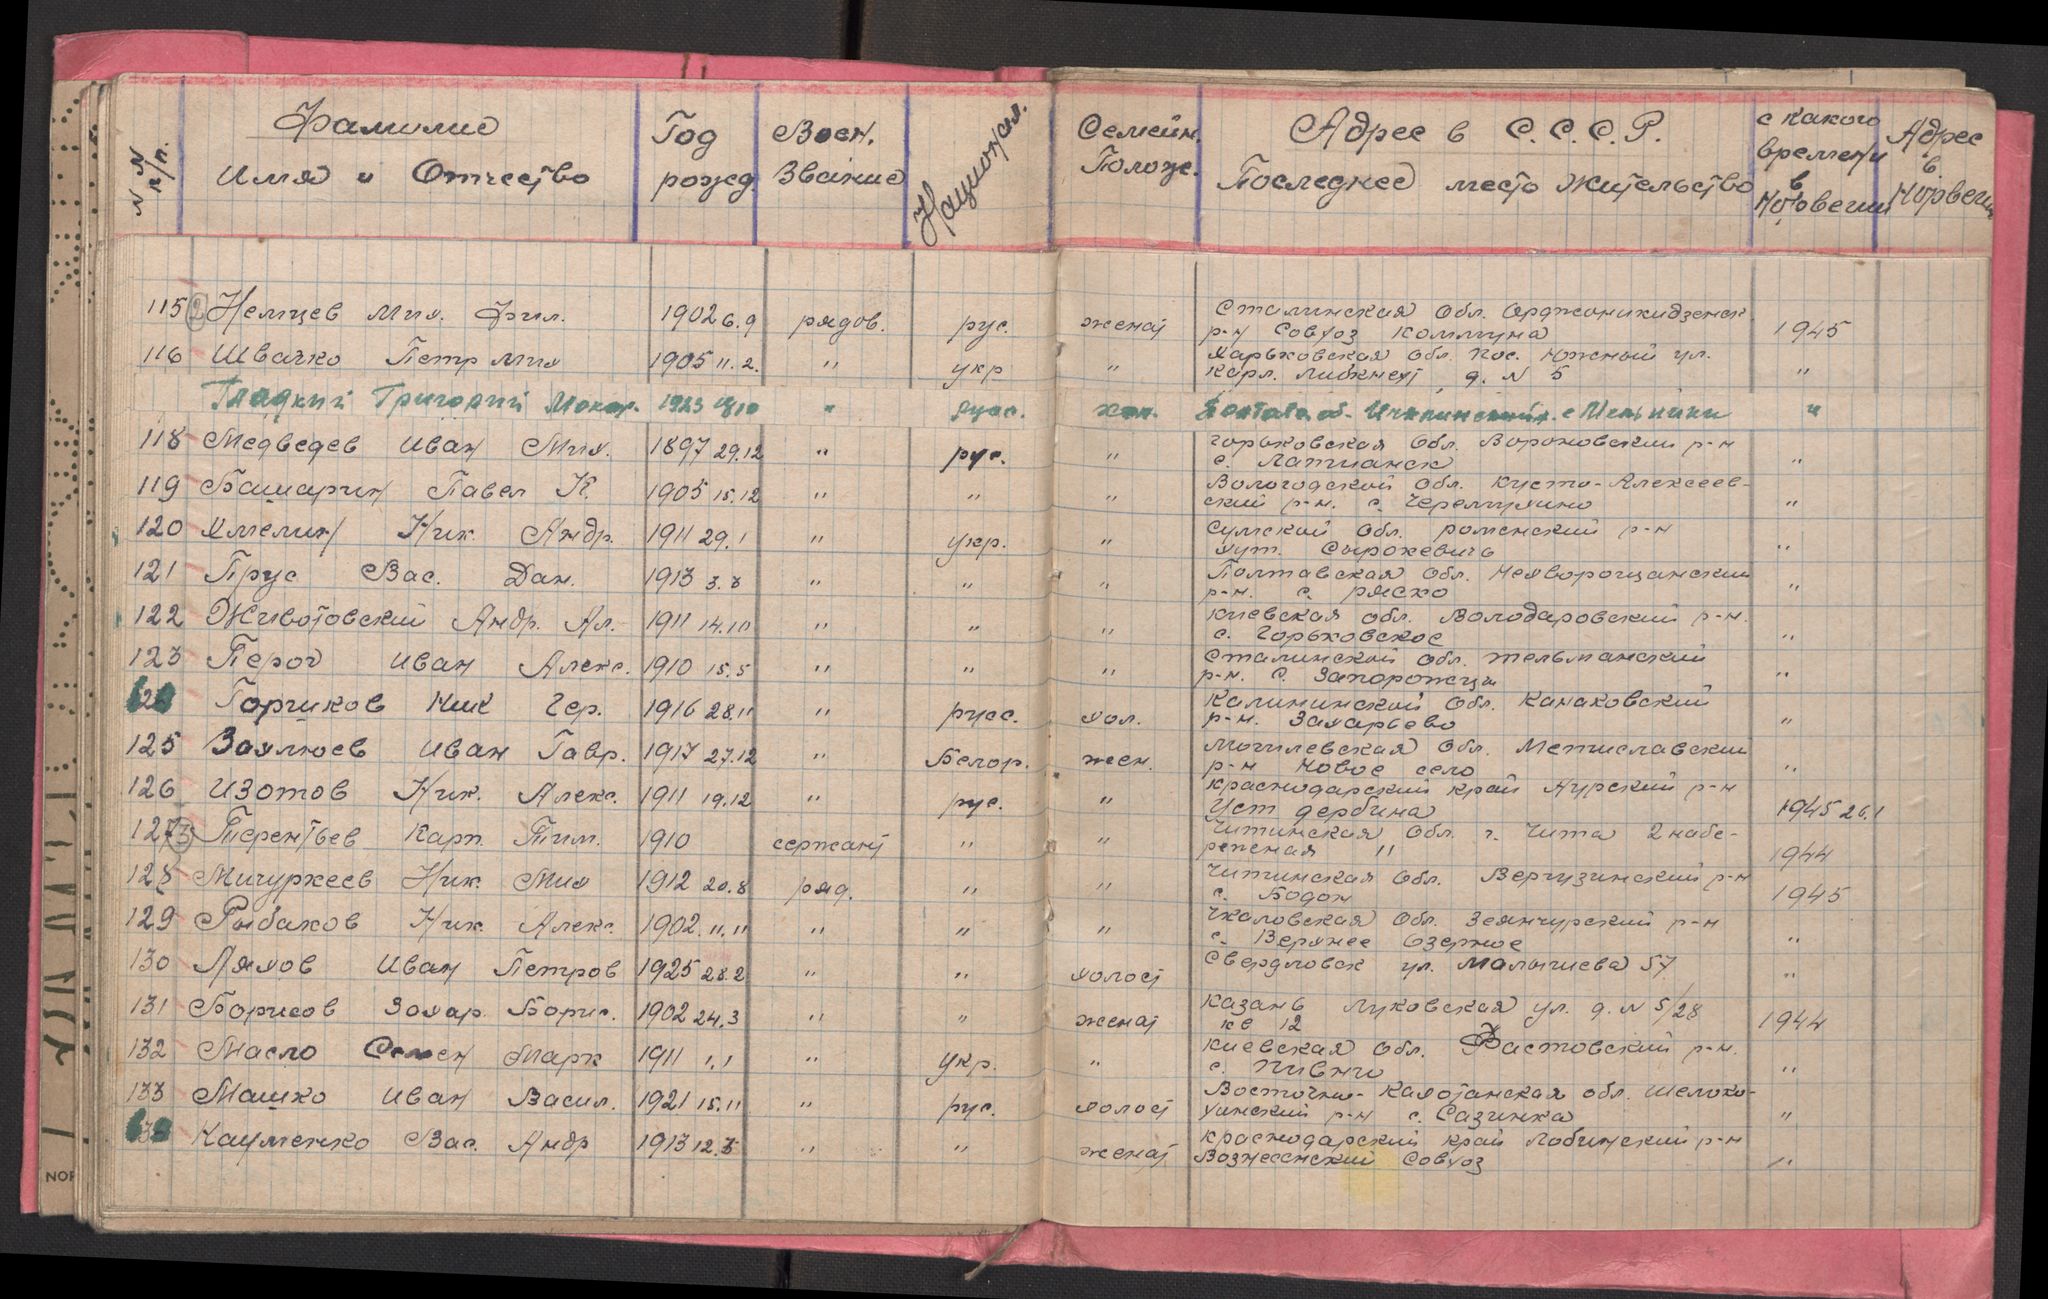 N N п/п. Фамилие Имя и Отчество Год рожд Воен. Звание Национал. Семейн. Полож. Адрес в С.С.С.Р. Последнее место жительство с какого времени в Норвегии Адрес в Норвегии
115 2 Немцев Мих. Фил. 1902 6.9 рядов. рус. женат Сталинская Обл. Орджоникидзенск.
р-н Совхоз Коммуна 1945
116 Швачко Петр Мих 1905 11.2. " укр " Харьковская Обл. пос. Южный ул.
Карл. Либкнехт д. N 5 "
Гладкий Григорий Макар. 1923 " хол. Полтава об. с Мельники "
118 Медведев Иван Мих. 1897 29.12 " рус. " Горьковская Обл. Вороновский р-н
с. "
119 Башарин Павел К. 1905 15.12 " " " Вологодской Обл. Кусто-Алексеев-
ский р-н. с. Черемухино "
120 Ямелин Ник. Андр. 1911 29.1 " укр. " Сумской Обл. роменский р-н
хут. Сырохевичь "
121 Прус Вас. Дан. 1913 3.3 " " " Полтавская Обл. Нехворощанский
р-н. с. ряско "
122 Животовский Андр. Ал. 1911 14.10 " " " Киевская обл. Володаровский р-н.
с. Горьковское "
123 Перог Иван Алекс. 1910 15.5 " " " Сталинской обл. тельманский
р-н. с. Запорожцы "
Горшков Ник Гер. 1916 28.11 " русс. хол. Калининской Обл. Канаковский
р-н. Захарьево "
125 Захлюев Иван Гавр. 1917 27.12 " Белор. жен. Могилевская Обл. Метиславский
р-н Новое село "
126 Изотов Ник. Алекс. 1911 19.12 " рус. " Краснодарский край р-н
Уст дербина 1945 26.1
127 3 Терентьев Карп. Тим. 1910 сержант " " Читинская Обл. г. Чита 2 набе-
режная " 1944
128 Мичуркеев Ник. Мих 1912 20.8 ряд. " " Читинская Обл. Вергузинский р-н
с. Бодон 1945
129 Рыбаков Ник. Алекс. 1902. 11.11 " " " Чкаловская Обл. Зеянчурский р-н
с. Верхнее Озерное "
130 Ляхов Иван Петров 1925 28.2 " " холост Свердловск ул. Малышева 57 "
131 Борисов Захар. Борис. 1902 24.3 " " женат Казань Луковская ул. д. N 5/28
кв 12 1944
132 Масло Семен Марк 1911 1.1 " укр. " Киевская Обл. Фастовский р-н.
с. Пивни "
133 Машко Иван Васил. 1921 15.11 " рус. холост Восточно-Казотанская обл. Шелоко-
хинский р-н с. Сазинка "
Науменко Вас. Андр 1913 12.3 " " женат Краснодарский край Лобинский р-н
Вознесенский Совхоз "
NOR